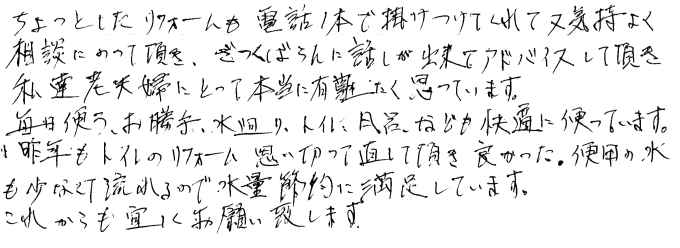 ちょっとしたリフォームも電話1本で掛けつけてくれて又気持よく
相談にのって頂き、ざっくばらんに話しが出来てアドバイスして頂き
私達老夫婦にとって本当に有難たく思っています。
毎日使う、お勝手、水回り、トイレ、風呂、なども快適に使っています。
昨年もトイレのリフォーム思い切って直して頂き良かった。使用の水
も少なくて流れるので水量節約に満足しています。
これからも宜しくお願い致します